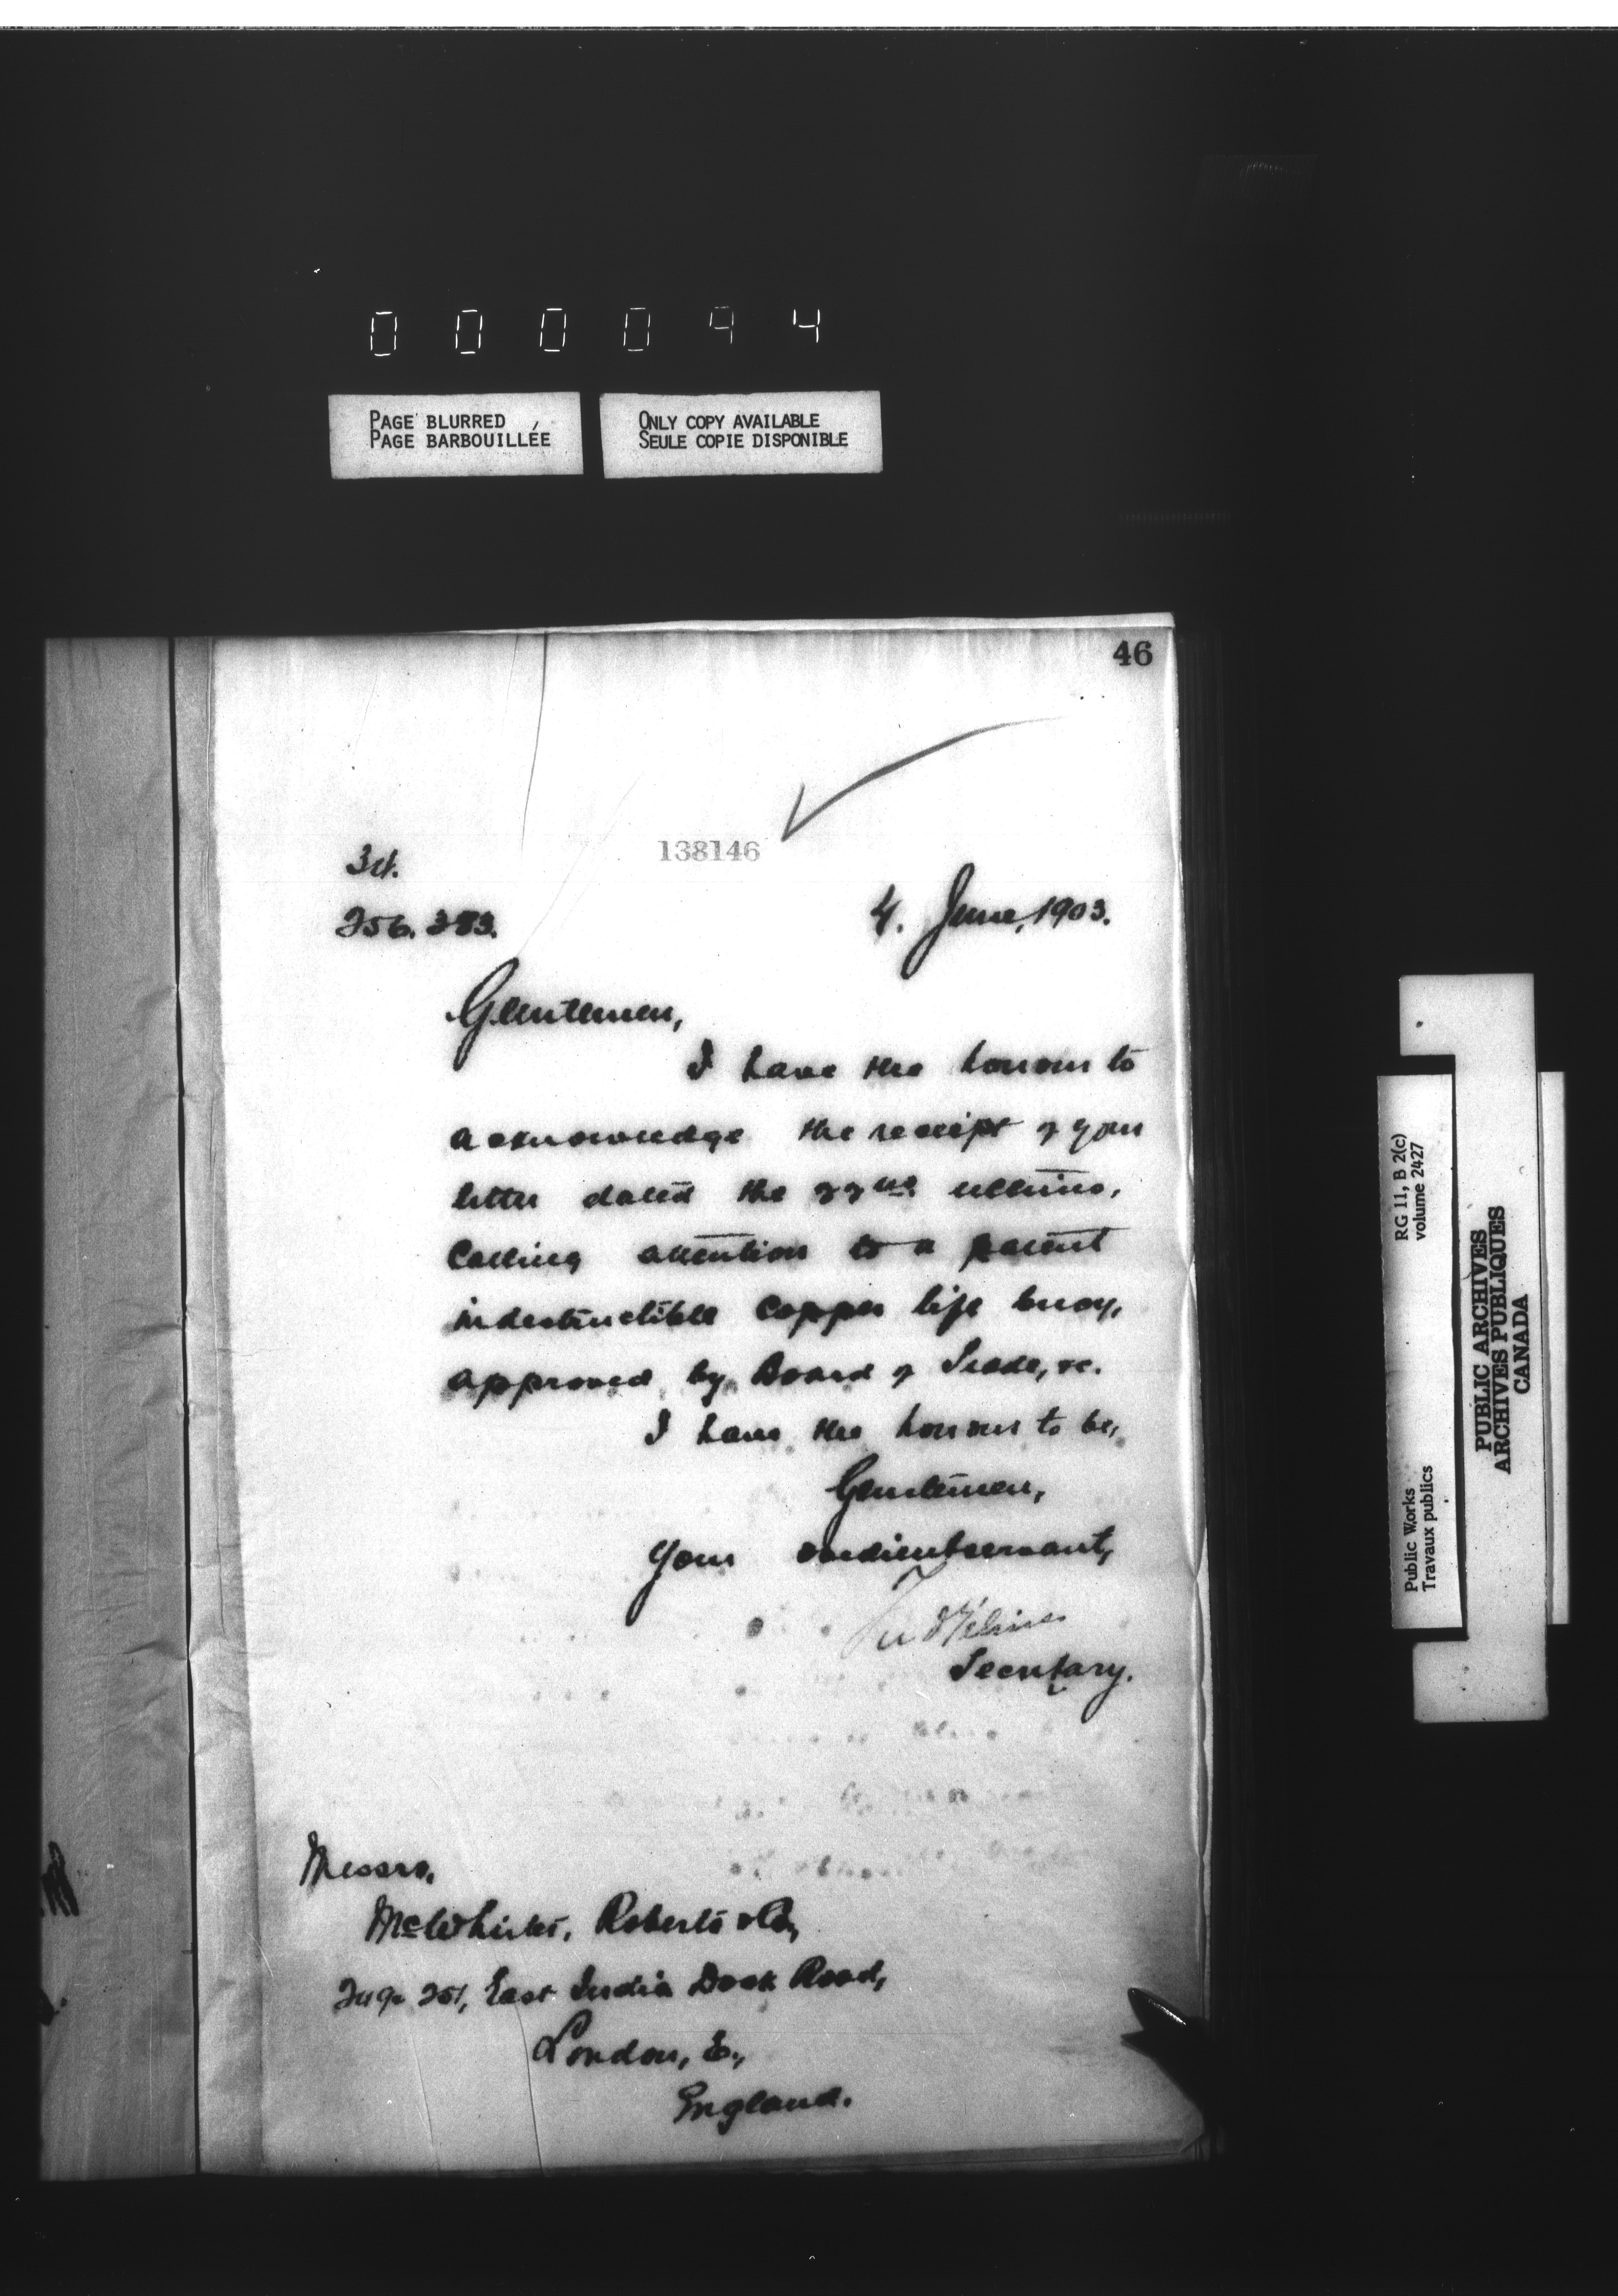 000094
PAGE BLURRED
PAGE BARBOUILLÉE
ONLY COPY AVAILABLE
SEULE COPIE DISPONIBLE
46
138146
256.383.
4. June, 1903.
Gentlemen,
I have the honour to
acknowledge the receipt of your
letter dated the 22nd ultimo,
calling attention to a patent
indestructible copper life buoy,
approved by Board of Trade, &c.
I have the honour to be,
Gentlemen,
Your obedient servant,
Secretary.
Messrs.
McWhirter, Roberts & Co,
251, East India Dock Road,
London, E.,
England.
RG 11, B 2(c)
volume 2427
Public Works
Travaux publics
PUBLIC ARCHIVES
ARCHIVES PUBLIQUES
CANADA